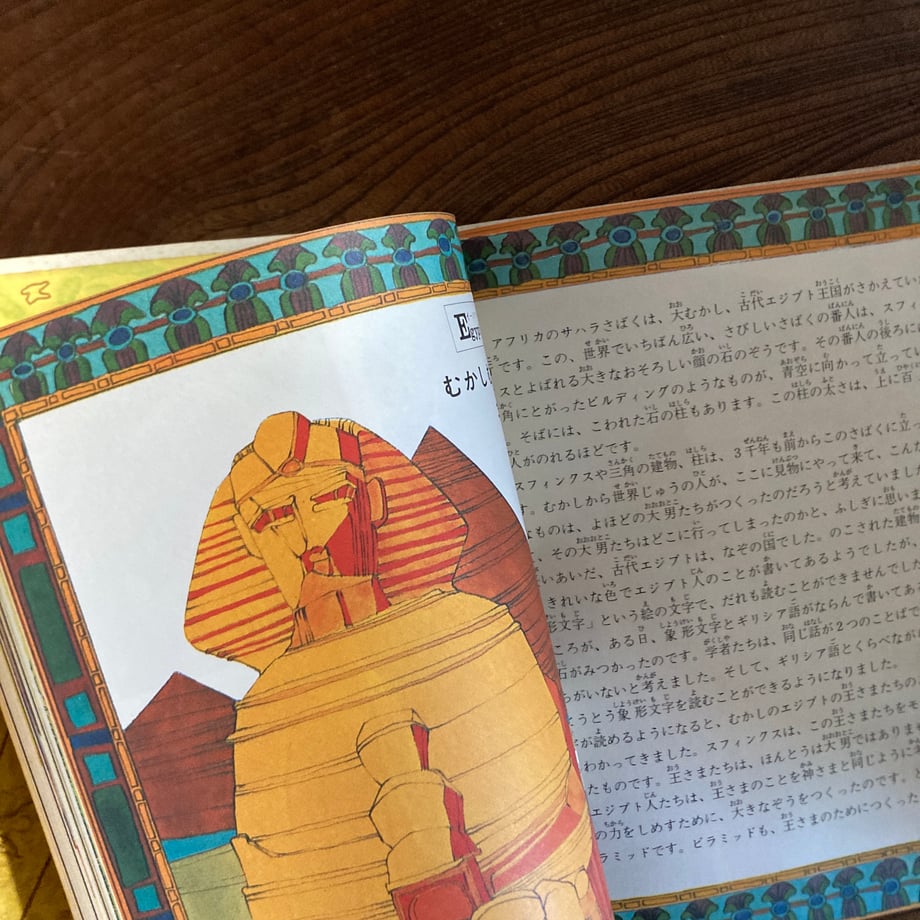 Egyp
むかし
アフリカのサハラさばくは、大むかし、古代エジプト王国がさかえてい
です。この、世界でいちばん広い、さびしいさばくの番人は、スフィ
スとよばれる大きなおそろしい顔の石のぞうです。その番人の後ろに
角にとがったビルディングのようなものが、青空に向かって立ってい
。そばには、こわれた石の柱もあります。この柱の太さは、上に百
人がのれるほどです。
スフィンクスや三角の建物、柱は、3千年も前からこのさばくに立っ
す。むかしから世界じゅうの人が、ここに見物にやって来て、こんな
なものは、よほどの大男たちがつくったのだろうと考えていまし
その大男たちはどこに行ってしまったのかと、ふしぎに思いま
いあいだ、古代エジプトは、なぞの国でした。のこされた建物
きれいな色でエジプト人のことが書いてあるようでしたが、
形文字」という絵の文字で、だれも読むことができませんでした
ころが、ある日、象形文字とギリシア語がならんで書いてあ
石がみつかったのです。学者たちは、同じ話が2つのことばで
がいないと考えました。そして、ギリシア語とくらべなが
とうとう象形文字を読むことができるようになりました。
が読めるようになると、むかしのエジプトの王さまたちの
わかってきました。スフィンクスは、この王さまたちをそ
たものです。王さまたちは、ほんとうは大男ではありま
エジプト人たちは、王さまのことを神さまと同じように
の力をしめすために、大きなぞうをつくったのです。
ラミッドです。ピラミッドも、王さまのためにつくった